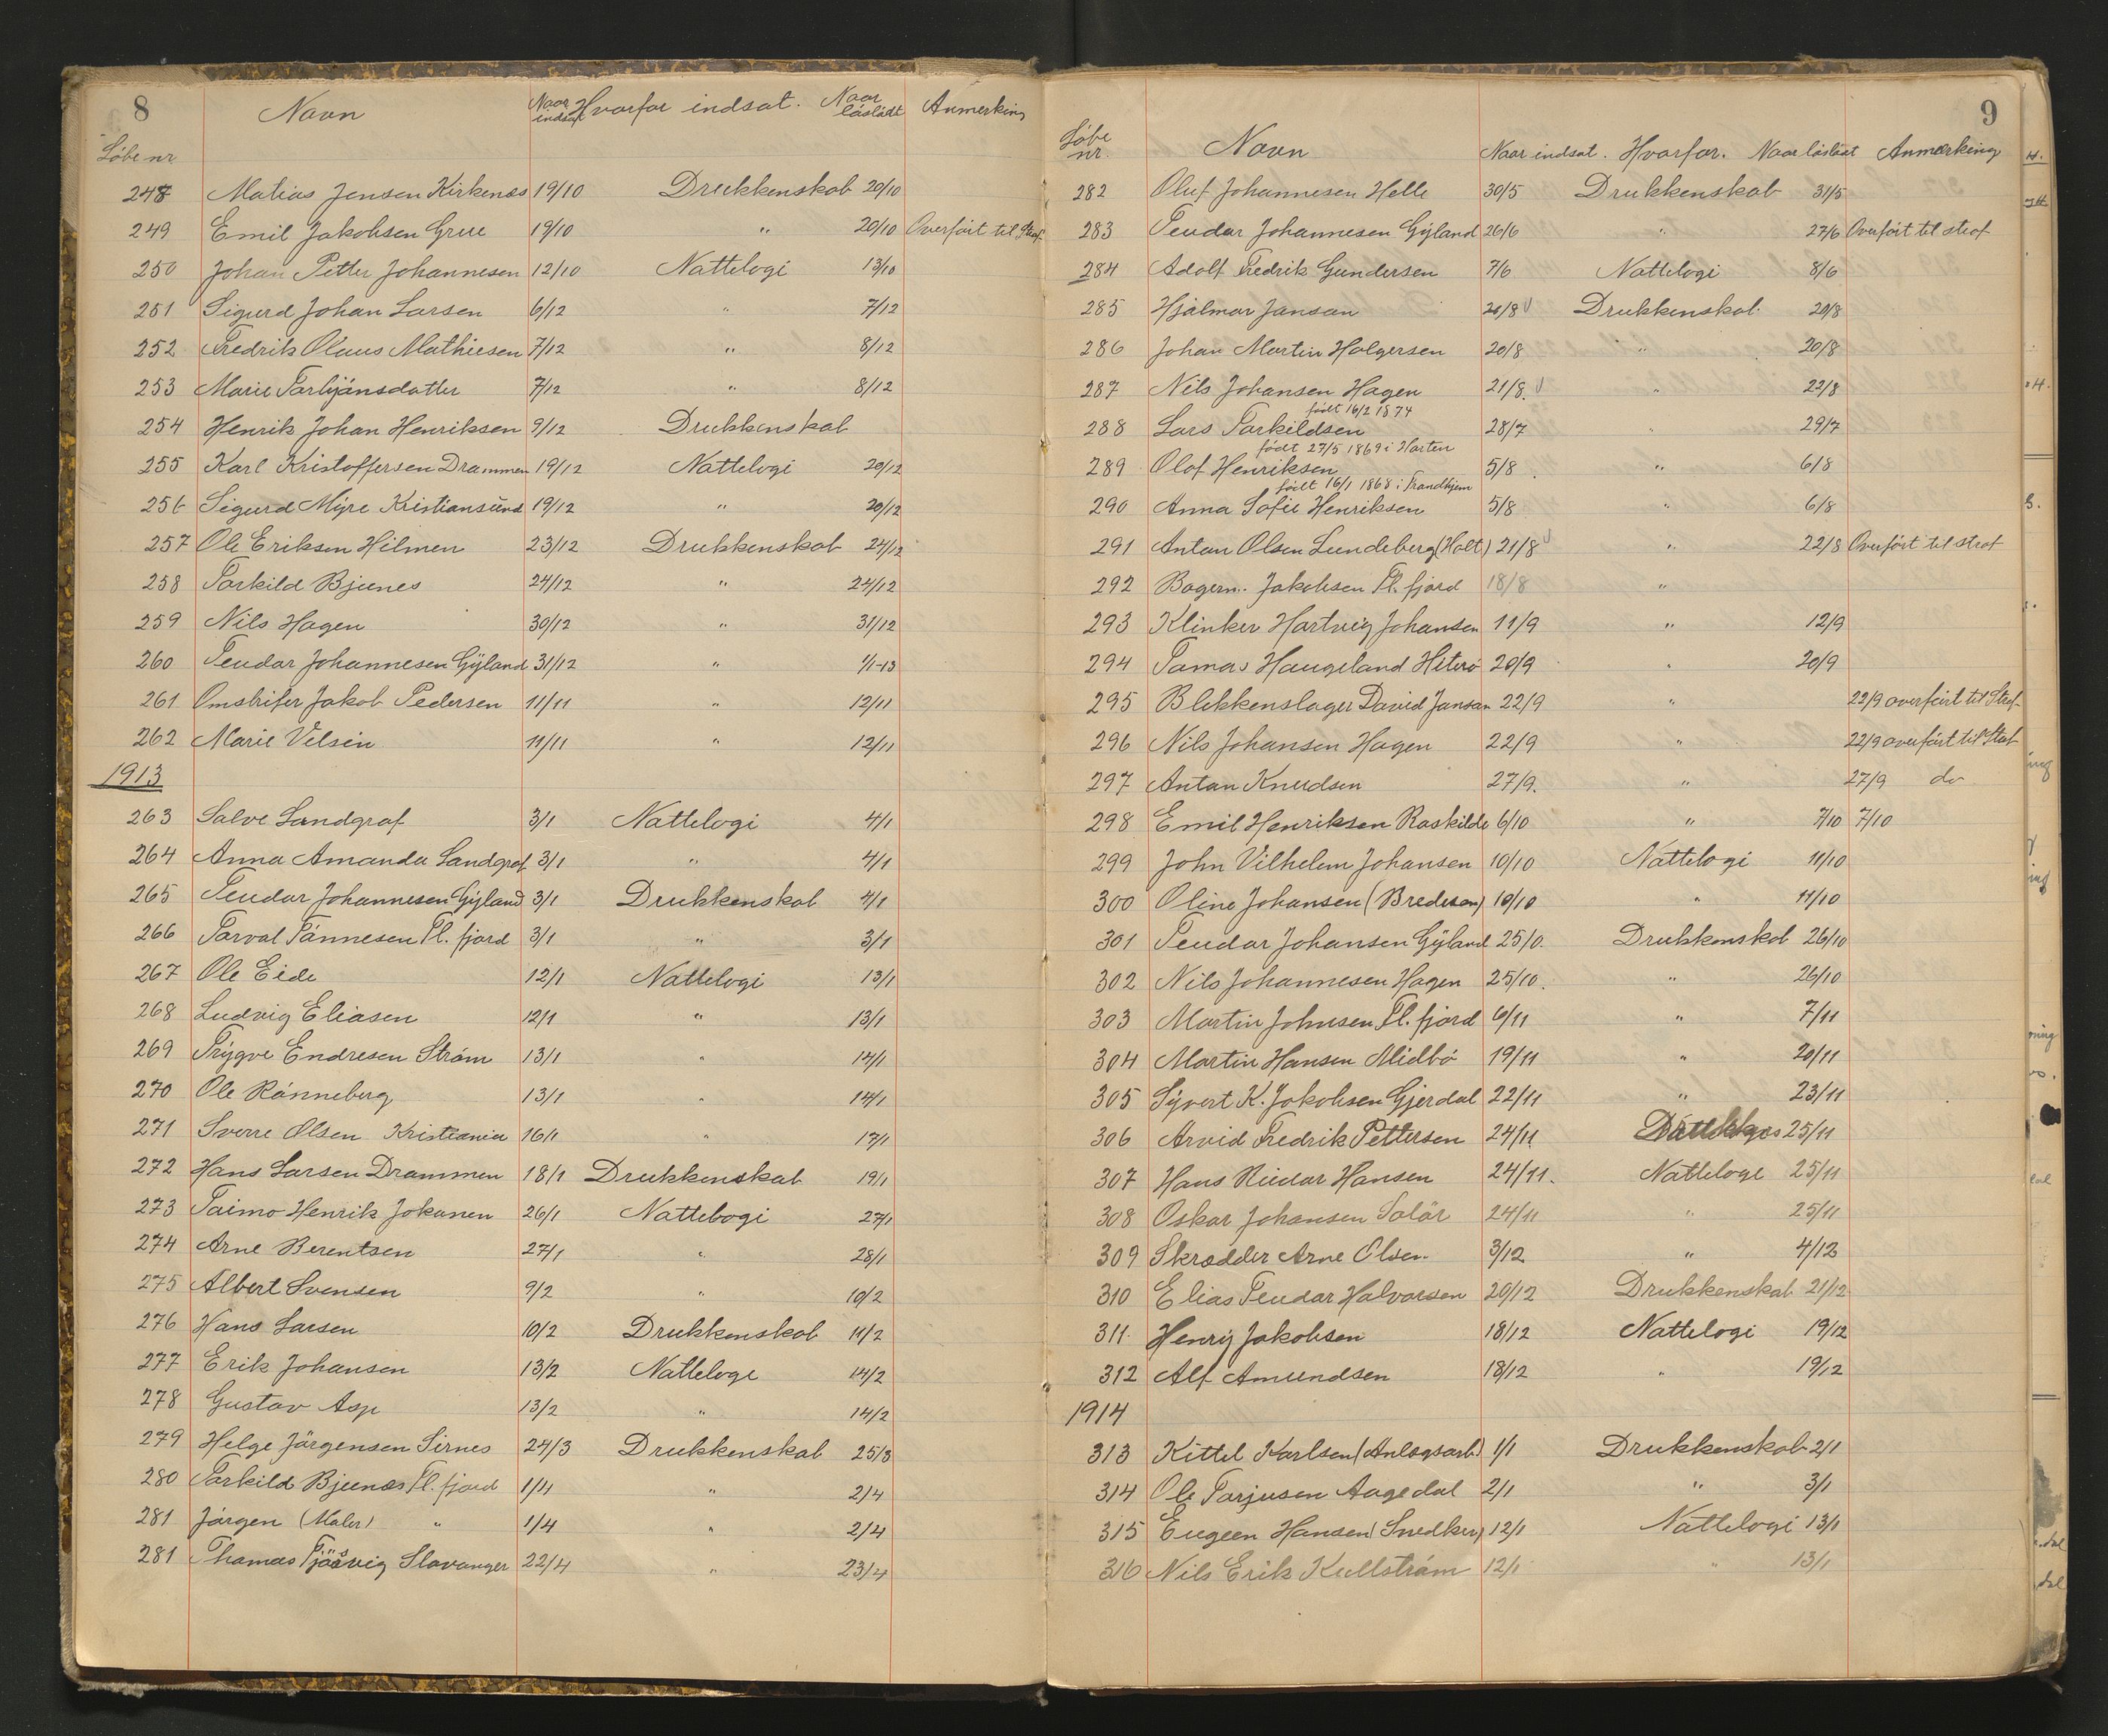 8
Navn Naar indsat Hvorfor indsat. Naar løsladt Anmerking
Löbe nr
248 Matias Jensen Kirkenæs 19/10 Drukkenskab 20/10
249 Emil Jakobsen Grue 19/10 " 20/10 Overført til Straf
250 Johan Petter Johannesen 12/10 Nattelogi 13/10
251 Sigurd Johan Larsen 6/12 " 7/12
252 Fredrik Olaus Mathiesen 7/12 " 8/12
253 Marie Torbjønsdatter 7/12 " 8/12
254 Henrik Johan Henriksen 9/12 Drukkenskab
255 Karl Kristoffersen Drammen 19/12 Nattelogi 20/12
256 Sigurd Myre Kristiansund 19/12 " 20/12
257 Ole Eriksen Hilmen 23/12 Drukkenskab 24/12
258 Torkild Bjunes 24/12 " 24/12
259 Nils Hagen 30/12 " 31/12
260 Teudor Johannesen Gyland 31/12 " 1/1-13
261 Omstrifer Jakob Pedersen 11/11 " 12/11
262 Marie Velsin 11/11 " 12/11
1913
263 Salve Landgraf 3/1 Nattelogi 4/1
264 Anna Amanda Landgraf 3/1 " 4/1
265 Teudor Johannesen Gyland 3/1 Drukkenskab 4/1
266 Torval Tönnesen Fl. fjord 3/1 " 3/1
267 Ole Eide 12/1 Nattelogi 13/1
268 Ludvig Eliasen 12/1 " 13/1
269 Trygve Endresen Strøm 13/1 " 14/1
270 Ole Rønneberg 13/1 " 14/1
271 Sverre Olsen Kristiania 16/1 " 17/1
272 Hans Larsen Drammen 18/1 Drukkenskab 19/1
273 Taimo Henrik Jokanen 26/1 Nattelogi 27/1
274 Arne Berentsen 27/1 " 28/1
275 Albert Svensen 9/2 " 10/2
276 Hans Larsen 10/2 Drukkenskab 11/2
277 Erik Johansen 13/2 Natteloge 14/2
278 Gustav Asp 13/2 " 14/2
279 Helge Jørgensen Sirnes 24/3 Drukkenskab 25/3
280 Torkild Bjunæs Fl. fjord 1/4 " 2/4
281 Jørgen (Maler) " 1/4 " 2/4
281 Thomas Tjøsvig Stavanger 22/4 " 23/4
9
Löbe nr. Navn Naar indsat. Hvorfor. Naar løsladt Anmærking
282 Oluf Johannesen Helle 30/5 Drukkenskab 31/5
283 Teudor Johannesen Gyland 26/6 " 27/6 Overført til straf
284 Adolf Fredrik Gundersen 7/6 Nattelogi 8/6
285 Hjalmar Janson 20/8 Drukkenskab 20/8
286 Johan Martin Holgersen 20/8 " 20/8
287 Nils Johansen Hagen 21/8. " 22/8
født 16/2 1874
288 Lars Torkildsen 28/7 " 29/7
født 27/5 1869 i Horten
289 Olof Henriksen 5/8 " 6/8
født 16/1 1868 i Trondhjem
290 Anna Sofie Henriksen 5/8 " 6/8
291 Anton Olsen Lundeberg (Holt) 21/8 " 22/8 Overført til straf
292 Bagerm. Jakobsen Fl. fjord 18/8 "
293 Klinker Hartvig Johansen 11/9 " 12/9
294 Tomas Haugeland Hiterø 20/9 " 20/9
295 Blekkenslager David Janson 22/9 " 22/9 overført til Straf
296 Nils Johansen Hagen 22/9 " 22/9 overført til Straf
297 Anton Knudsen 27/9. " 27/9 do
298 Emil Henriksen Roskilde 6/10 " 7/10 7/10
299 John Vilhelm Johansen 10/10 Nattelogi 11/10
300 Oline Johansen (Bredesen) 10/10 " 11/10
301 Teudor Johansen Gyland 25/0. Drukkenskab 26/10
302 Nils Johannesen Hagen 25/10. " 26/10
303 Martin Johnsen Fl. fjord 6/11 " 7/11
304 Martin Hansen Midbø 19/11 " 20/11
305 Syvert K. Jakobsen Gjerdal 22/11 " 23/11
306 Arvid Fredrik Pettersen 24/11 25/11
307 Hans Reidar Hansen 24/11. Natteloge 25/11
308 Oskar Johansen Solör 24/11 " 25/11
309 Skrædder Arne Olsen 3/12 " 4/12
310 Elias Teudor Halvorsen 20/12 Drukkenskab 21/12
311 Henry Jakobsen 18/12 Nattelogi 19/12
312 Alf Amundsen 18/12 " 19/12
1914
313 Kittel Karlsen (Anlægsarb) 1/1 Drukkenskab 2/1
314 Ole Torjusen Aagedal 2/1 " 3/1
315 Eugeen Hansen (Snedker) 12/1 Nattelogi 13/1
316 Nils Erik Kullström 12/1 " 13/1